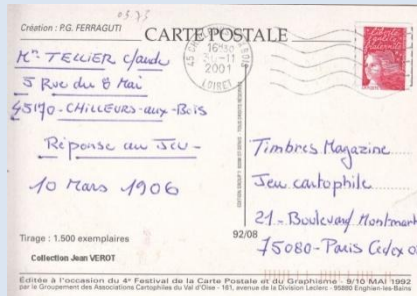 03.73
Création : P.G. FERRAGUTI
CARTE POSTALE
Mr TELLIER Claude
5 Rue du 8 Mai
45170-CHILLEURS-aux-Bois
Réponse au Jeu-
10 Mars 1906
16H30
2001
LOIRET
Timbres Magazine
Jeu cartophile
21-Boulevard Montmart
75080-Paris Cedex 0
92/08
Tirage : 1.500 exemplaires
Collection Jean VEROT
Éditée à l'occasion du 4e Festival de la Carte Postale et du Graphisme - 9/10 MAI 1992
par le Groupement des Associations Cartophiles du Val d'Oise - 161, avenue de la Division Leclerc - 95880 Enghien-les-Bains